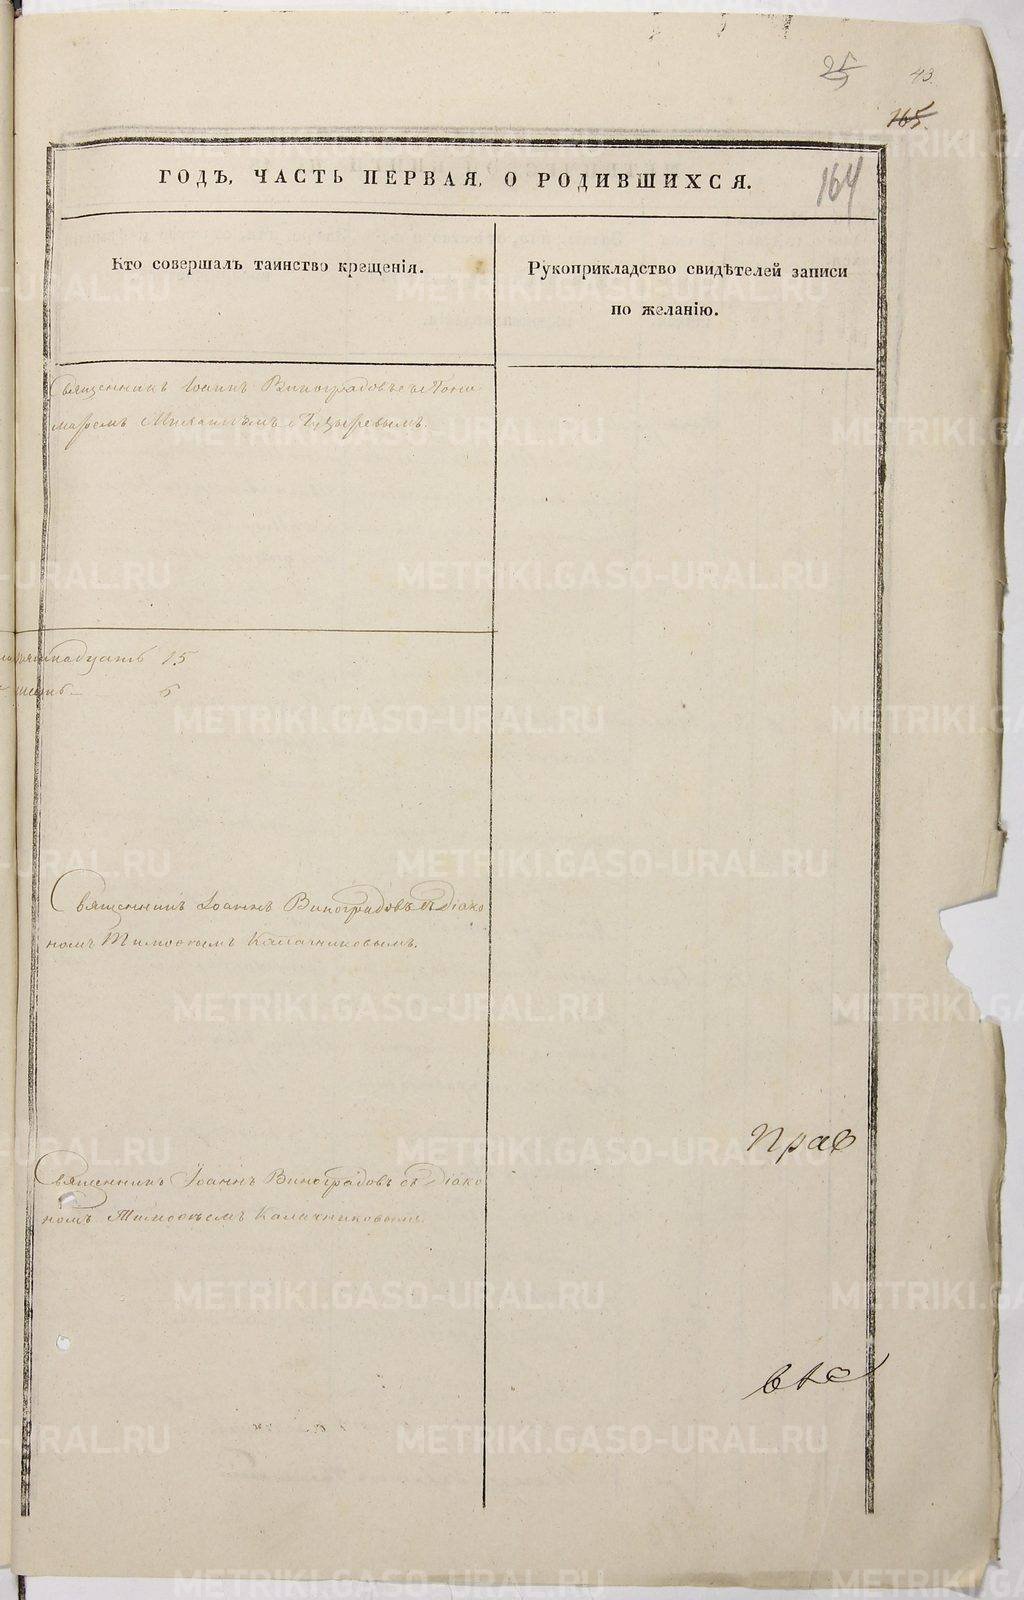 25
43.
165.
164
ГОДЪ, ЧАСТЬ ПЕРВАЯ, О РОДИВШИХСЯ.
Кто совершалъ таинство крещенія.
Рукоприкладство свидѣтелей записи
по желанію.
Священникъ Іоаннъ Виноградовъ съ Поно
маремъ
15
6
Священникъ Іоаннъ Виноградовъ съ Діако
номъ Тимоѳеемъ Калачниковымъ.
Прав
Священникъ Іоаннъ Виноградовъ съ Діако
номъ Тимоѳеемъ Калачниковымъ.
METRIKI.GASO-URAL.RU